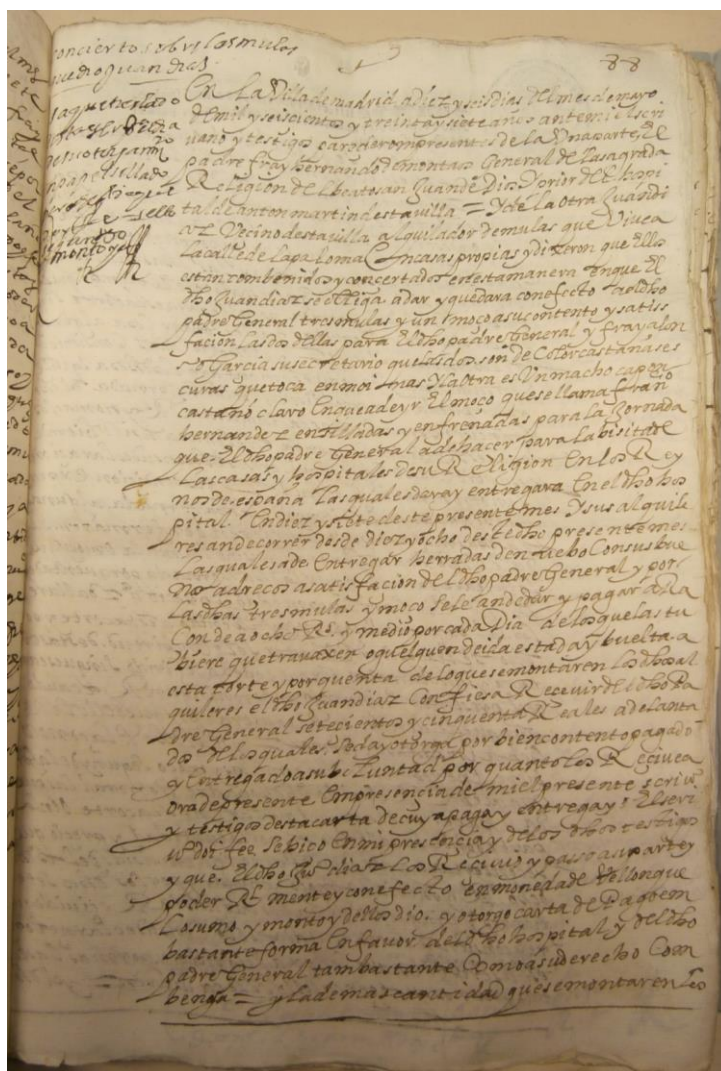 concierto sobre las mulas
que dio Juan dias
88
En La Villa de madrid a diez y seis dias del mes de mayo
de mil y seiscientos y treinta y siete anos ante mi el scri
uano y testigos parecieron presentes de la Una parte el
padre fray hernando de montas General de la sagrada
Religion del beato san Juan de Dios Prior del hospi
tal de anton martin desta villa = Y de la otra Juan di
az Vecino desta villa alquilador de mulas que Vive a
la calle de la paloma En casas propias y dixeron que Ellos
estan combenidos y concertados en esta manera En que El
dho Juan diaz se obliga a dar y que dara con efecto al dho
padre General tres mulas y un moco a su contento y satis
facion Las dos dellas para El dho padre General y fray alon
so Garcia su secretario que las dos son de Color castañas es
curas que toca en moinas Y la otra es Un macho capon
castaño claro En que a de yr El moco que se llama fran co
hernandez ensilladas y enfrenadas para la Jornada
que El dho padre General a de hacer para La bisita de
Las casas y hospitales de su Religion En los Rey
nos de españa Las quales dara y entregara En el dho hos
pital En diez y siete deste presente mes Y sus alquile
res an de correr desde diez y ocho deste dho presente mes
Las quales a de Entregar herradas de nuebo Con sus bue
nos adrecos a satisfacion del dho padre General y por
Las dhas tres mulas y moco se le an de dar y pagar a Ra
Con de a ocho Rs. y medio por cada Dia de los que las tu
biere que travaxen o quelguen de ida estada y buelta a
esta corte y por quenta de lo que se montaren los dhos al
quileres el dho Juan diaz Confiesa Recevir del dho Pa
dre General setecientos y cinquenta Reales adelanta
dos de los quales se da y otorga por bien contento pagado
y Entregado a su boluntad por quanto los Recive a
ora de presente En presencia de mi el presente scriuo
y testigos desta carta de cuya paga y entrega yo El scri
uo doi fee se hico En mi presencia y de los dhos testigos
y que El dho Juo diaz Los Recivio y passo a su parte y
poder Rl mente y con efecto en moneda de Vellon que
Lo sumo y monto y dellos dio y otorgo carta de Pago em
bastante forma En favor del dho hospital y del dho
padre General tam bastante Como a su derecho Com
benga = y la demas cantidad que se montaren Los